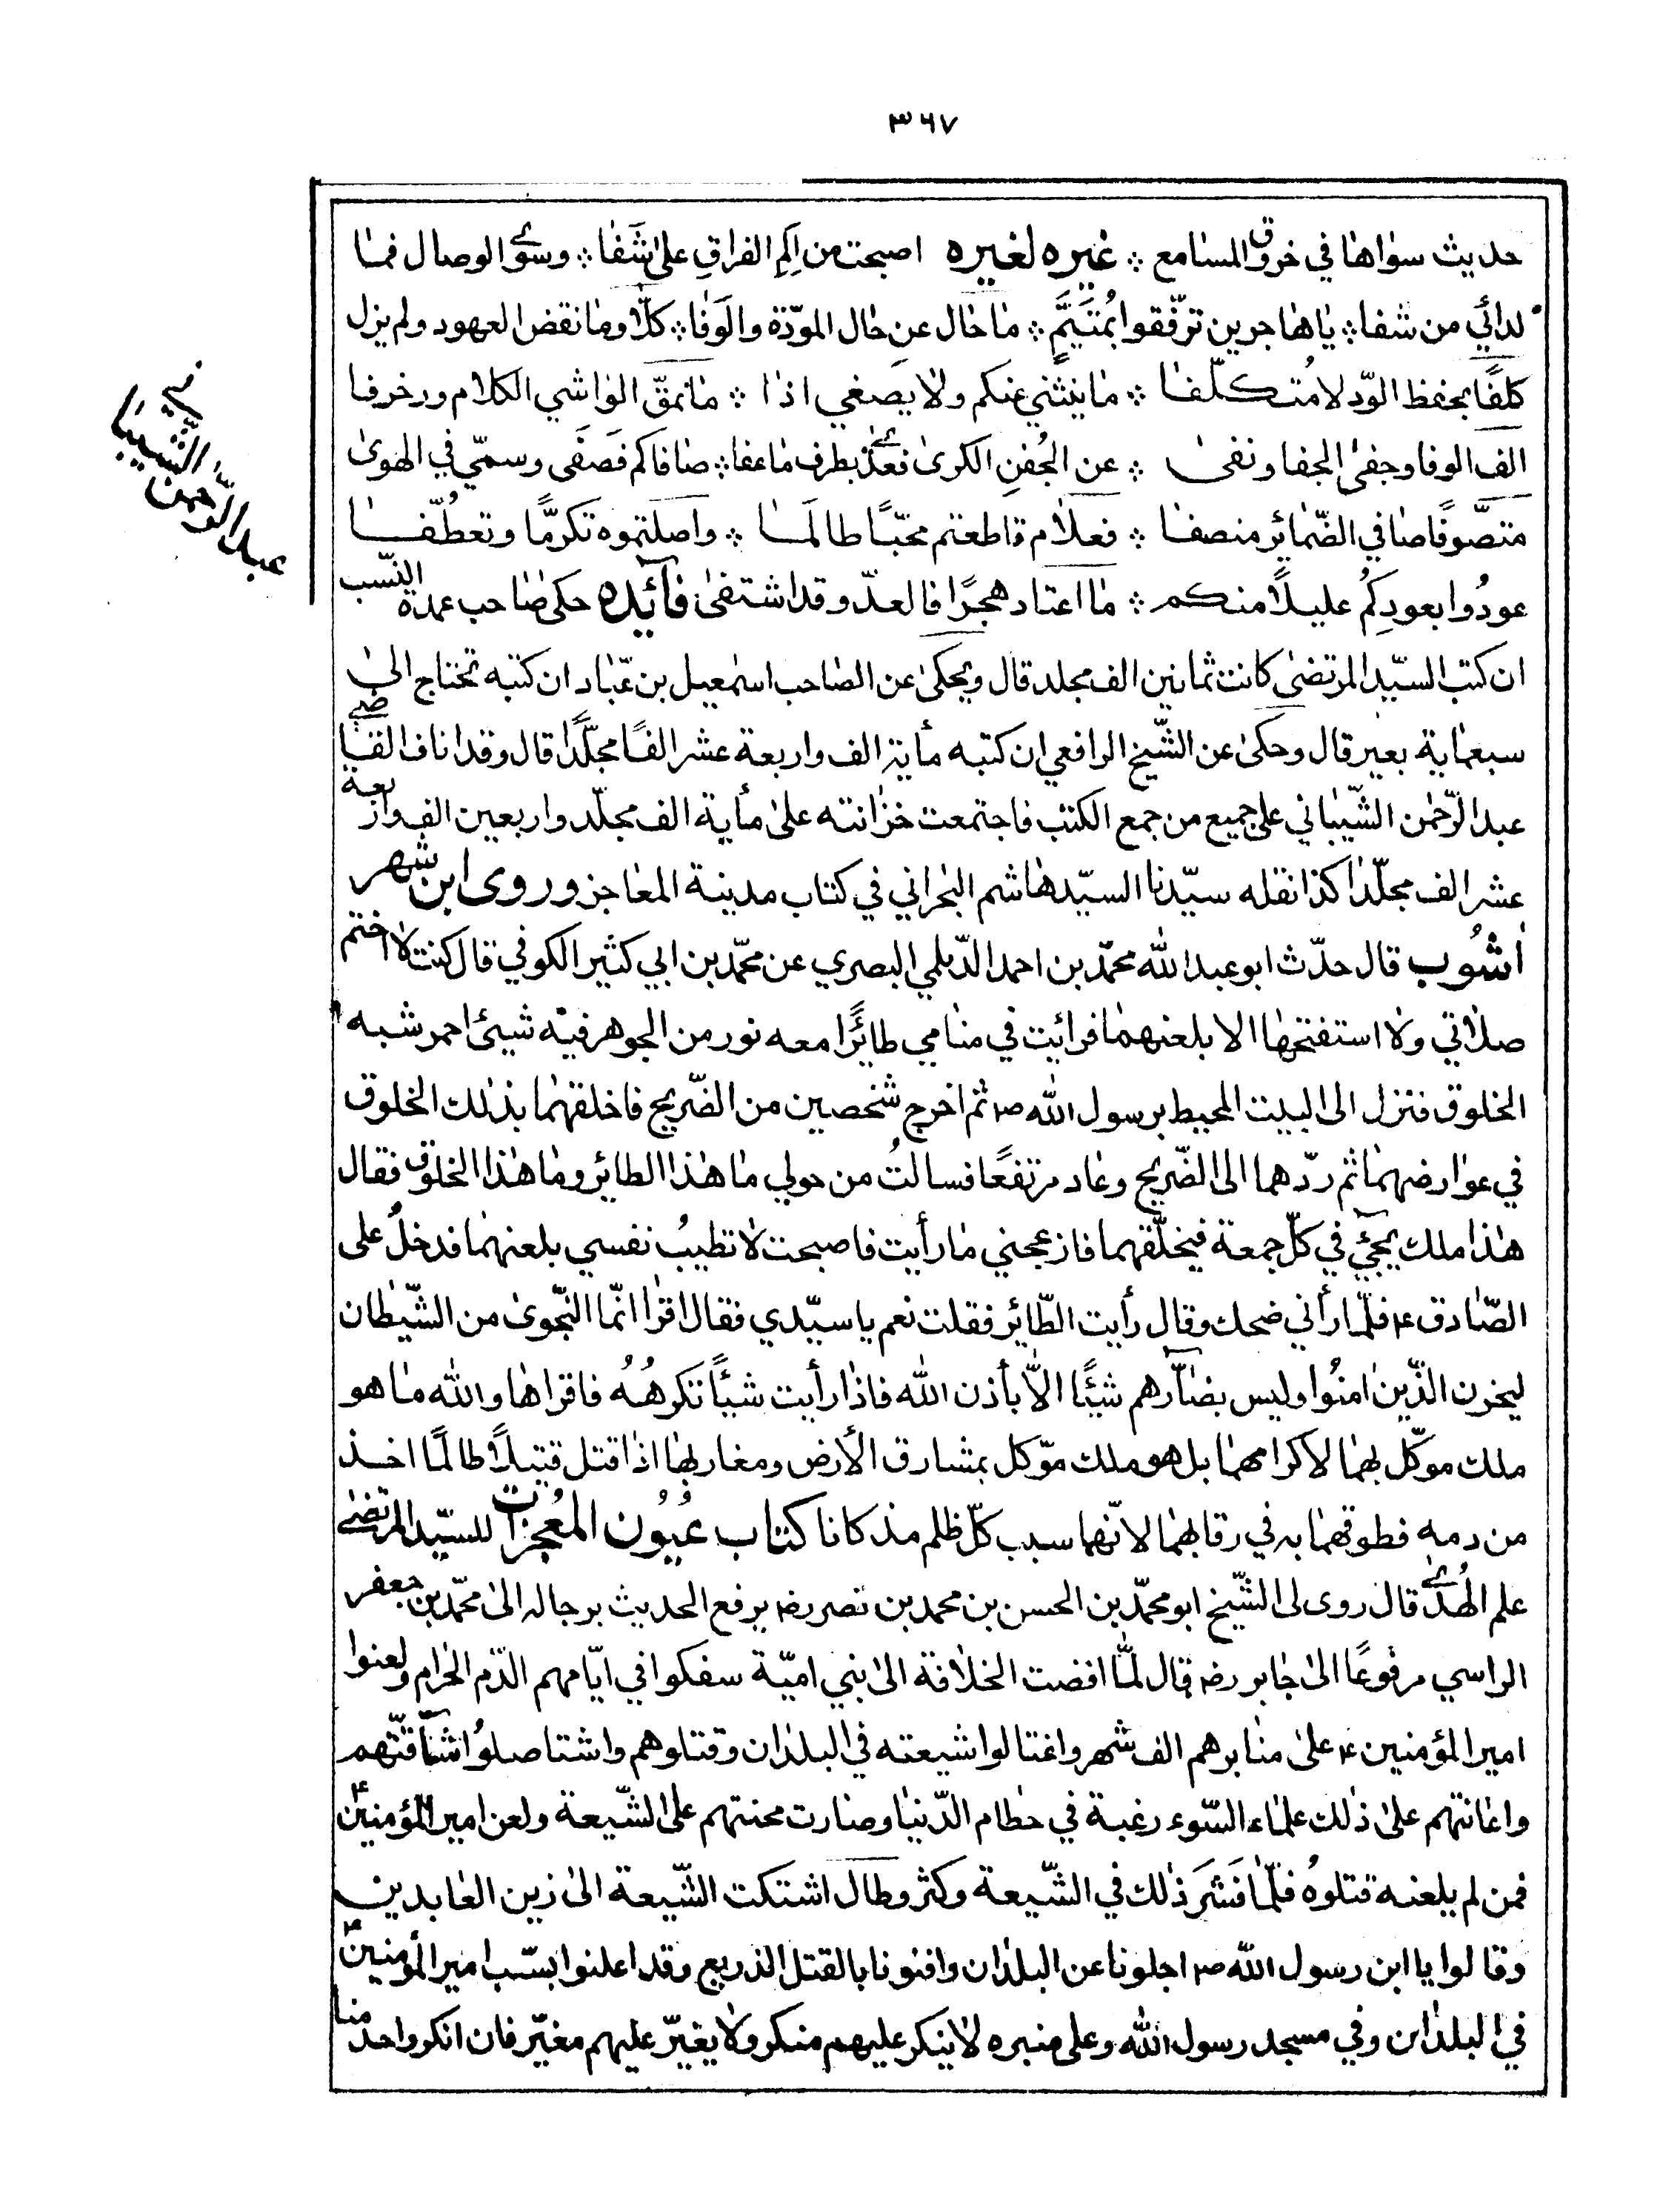 ٣٦٧
حديث سواها في خروق المسامع ※ غيره لغيره اصبحت من اكم الفراق على شفا ※ وسوى الوصال فما
لدائي من شفا ※ ياهاجرين ترفّقوا بمُتَيَّمٍ ※ ما حال عن حال المودّة والوَفا ※ كلّا وما نقض العهود ولم يزل
كلفًا بحفظ الودّ لا مُتكلّفا ※ ما ينثني عنكم ولا يصغي اذا ※ ما نمقّ الواشي الكلام وزخرفا
الف الوفا وجفى الجفا ونفى ※ عن الجُفنِ الكرى فعدّى بطرف ما غفا ※ صافاكم فَصَفَى وسمّي في الهوى
متصّوفًا صافي الضّمائر منصفا ※ فعلام قاطعتم محبًّا طالَما ※ واصلتموه تكرمًّا وتعطُّفا
عودُوا بعودِكُم عليلًا منكم ※ ما اعتاد هجرًا فالعدّو قد اشتفى فآئده حكى صاحب عمدة النّسب
ان كتب السيّد المرتضى كانت ثمانين الف مجلد قال ويحكى عن الصاحب اسمعيل بن عبّاد ان كتبه تحتاج الى
سبعماية بعير قال وحكى عن الشّيخ الرافعي ان كتبه مأية الف واربعة عشر الفًا مجلّدًا قال وقد اناف القاضي
عبد الرّحمن الشّيباني على جميع من جمع الكتب فاجتمعت خزانته على مأية الف مجلّد واربعين الف واربعة
عشر الف مجلّدا كذا نقله سيّدنا السيّد هاشم البحراني في كتاب مدينة المعاجز وروى ابن شهر
اشُوب قال حدّث ابو عبد الله محمّد بن احمد الدّيلمي البصري عن محمّد بن ابي كثير الكوفي قال كنت لا اختم
صلاتي ولا استفتحها الا بلعنهما فرائيت في منامي طائرًا معه نور من الجوهر فيه شيئ احمر شبه
الخلوق فنزل الى البيت المحيط برسول الله ص ثم اخرج شخصين من الضّريح فاخلقهما بذلك الخلوق
في عوارضهما ثم ردّهما الى الضّريح وعاد مرتفعًا فسالتُ من حولي ما هذا الطائر وما هذا الخلوق فقال
هذا ملك يجيئ في كلّ جمعة فيخلّقهما فازعجني ما رأيت فاصبحت لا تطيبُ نفسي بلعنهما فدخلُ على
الصّادق ع فلمّا رأني ضحك وقال رأيت الطّائر فقلت نعم يا سيّدي فقال اقرا انّما النّجوى من الشّيطان
ليحزن الذّين امنُوا وليس بضآرّهم شيئًا الّا بأذن الله فاذا رأيت شيئًا تكرهُهُ فاقراها والله ما هو
ملك موكّل بهما لاكرامهما بل هو ملك موّكل بمشارق الأرض ومغاربها اذا قتل قتيلًا ظالمًا اخذ
من دمه فطوقهما به في رقابهما لانّهما سبب كلّ ظلم مذ كانا كتاب عُيُون المُعجزات للسيّد المرتضى
علم الهُدى قال روى لى الشّيخ ابو محمّد بن الحسن بن محمد بن نصر رض يرفع الحديث برجاله الى محمّد بن جعفر
الراسي مرفوعًا الى جابر رض قال لمّا افضت الخلافة الى بني اميّة سفكوا في ايّامهم الدّم الحرام ولعنوا
امير المؤمنين ع على منابرهم الف شهر واغتالوا شيعته في البلدان وقتلوهم واشتاصلوُا شآقّتهم
واعانتهم على ذلك علماء السّوء رغبة في حطام الدّنيا وصارت محنتهم على الشّيعة ولعن امير المؤمنين ع
فمن لم يلعنه قتلوهُ فلّما فَشَرَ ذلك في الشّيعة وكثر وطال اشتكت الشّيعة الى زين العابدين ع
وقالوا يا ابن رسول الله ص اجلونا عن البلدان وافنونا بالقتل الذريع وقد اعلنوا بسّب امير المؤمنين ع
في البلدان وفي مسجد رسول الله وعلى منبره لا ينكر عليهم منكر ولا يغيّر عليهم مغيّر فان انكر واحد منا
عبد الرّحمن الشّيباني